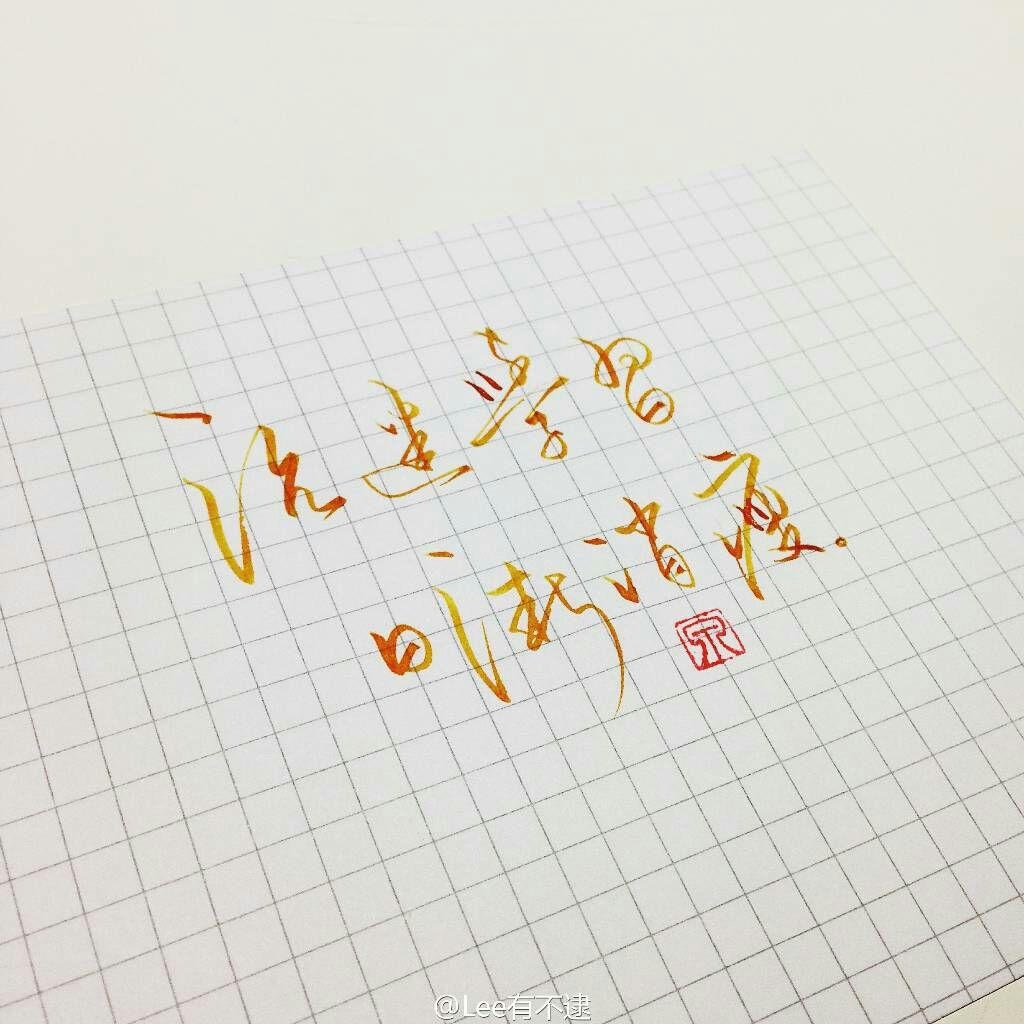 沉迷学習
日渐消瘦.
@Lee有不逮